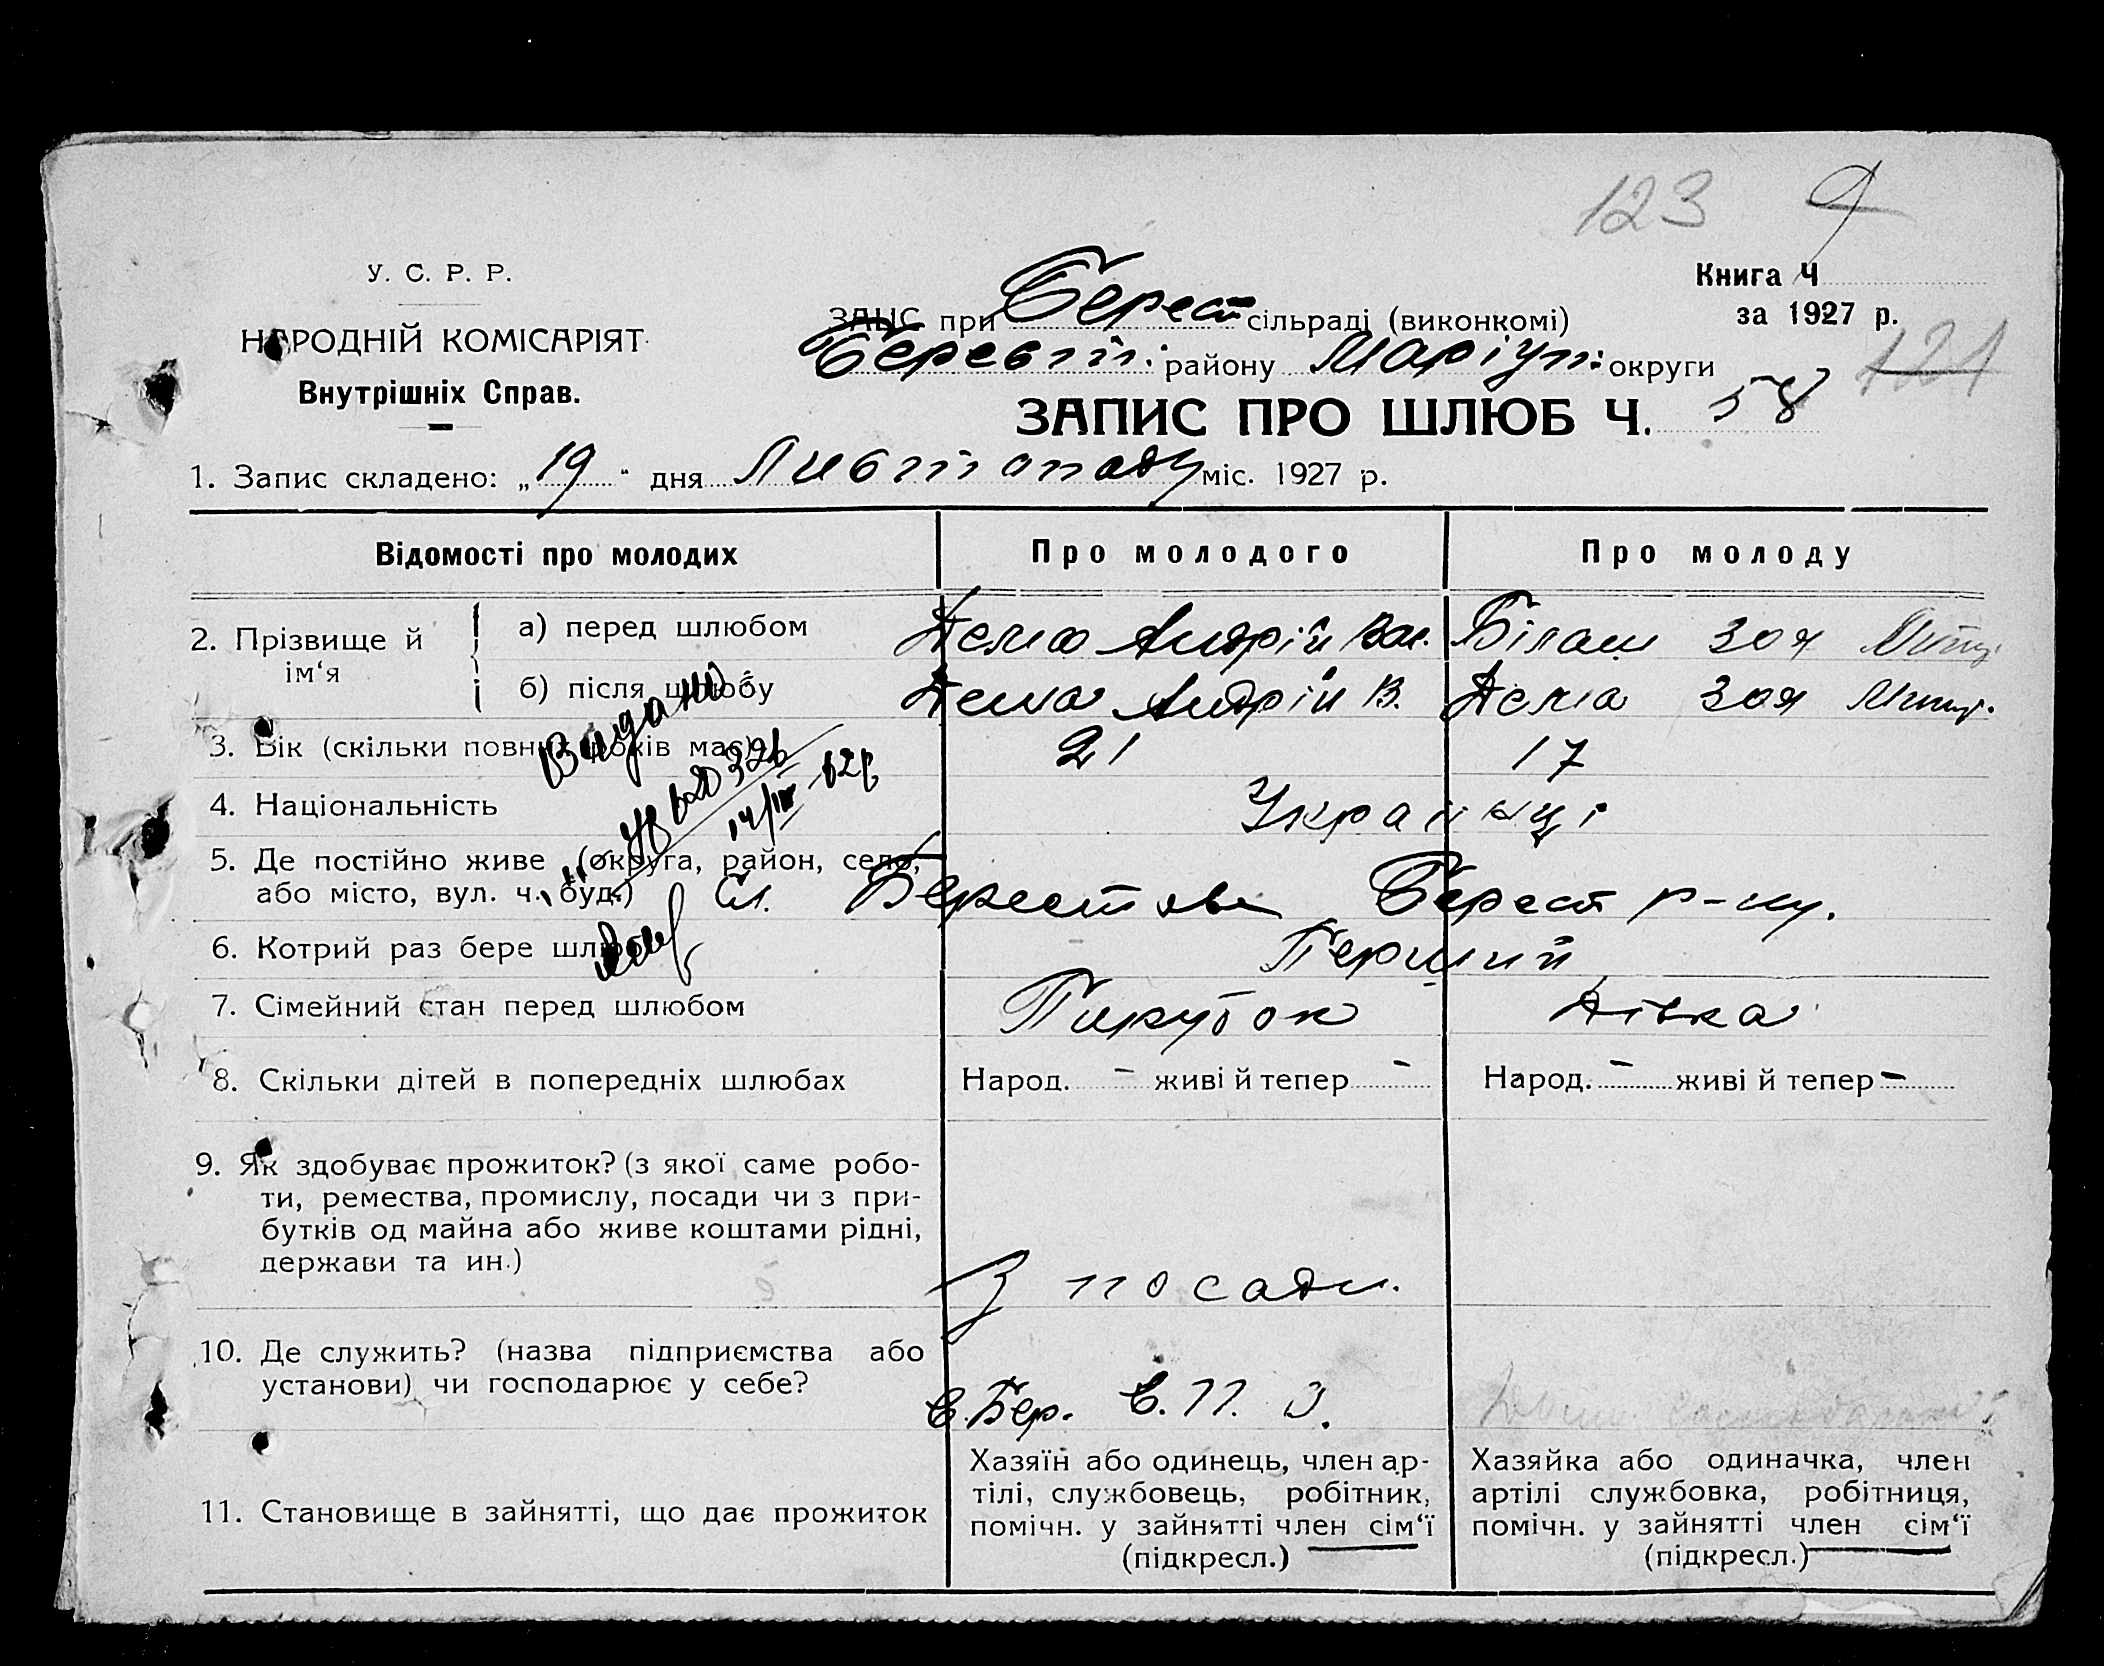 123
У. С. Р. Р.
НАРОДНІЙ КОМІСАРІЯТ
Внутрішніх Справ.
Книга Ч
за 1927 р.
ЗАЦС при Берест сільраді (виконкомі)
Берест. району Маріуп: округи
121
ЗАПИС ПРО ШЛЮБ Ч. 58
1. Запис складено: „19“ дня Листопаду міс. 1927 р.
Відомості про молодих Про молодого Про молоду
2. Прізвище й ім‘я
а) перед шлюбом Андрій Білаш Зоя
б) після шлюбу Андрій В. Зоя
Видано
3. Вік (скільки повних років має) 21 17
4. Національність Українці
5. Де постійно живе (округа, район, село,
або місто, вул. ч. буд.) Сл. Берестове Берест р-ну.
6. Котрий раз бере шлюб Перший
7. Сімейний стан перед шлюбом Парубок Дівка
8. Скільки дітей в попередніх шлюбах Народ. – живі й тепер – Народ. – живі й тепер –
9. Як здобуває прожиток? (з якої саме робо-
ти, ремества, промислу, посади чи з при-
бутків од майна або живе коштами рідні,
держави та ин.) З посади.
10. Де служить? (назва підприємства або
установи) чи господарює у себе? Бер. Є. П. З.
11. Становище в зайнятті, що дає прожиток
Хазяїн або одинець, член ар-
тілі, службовець, робітник,
помічн. у зайнятті член сім‘ї
(підкресл.)
Хазяйка або одиначка, член
артілі службовка, робітниця,
помічн. у зайнятті член сім‘ї
(підкресл.)